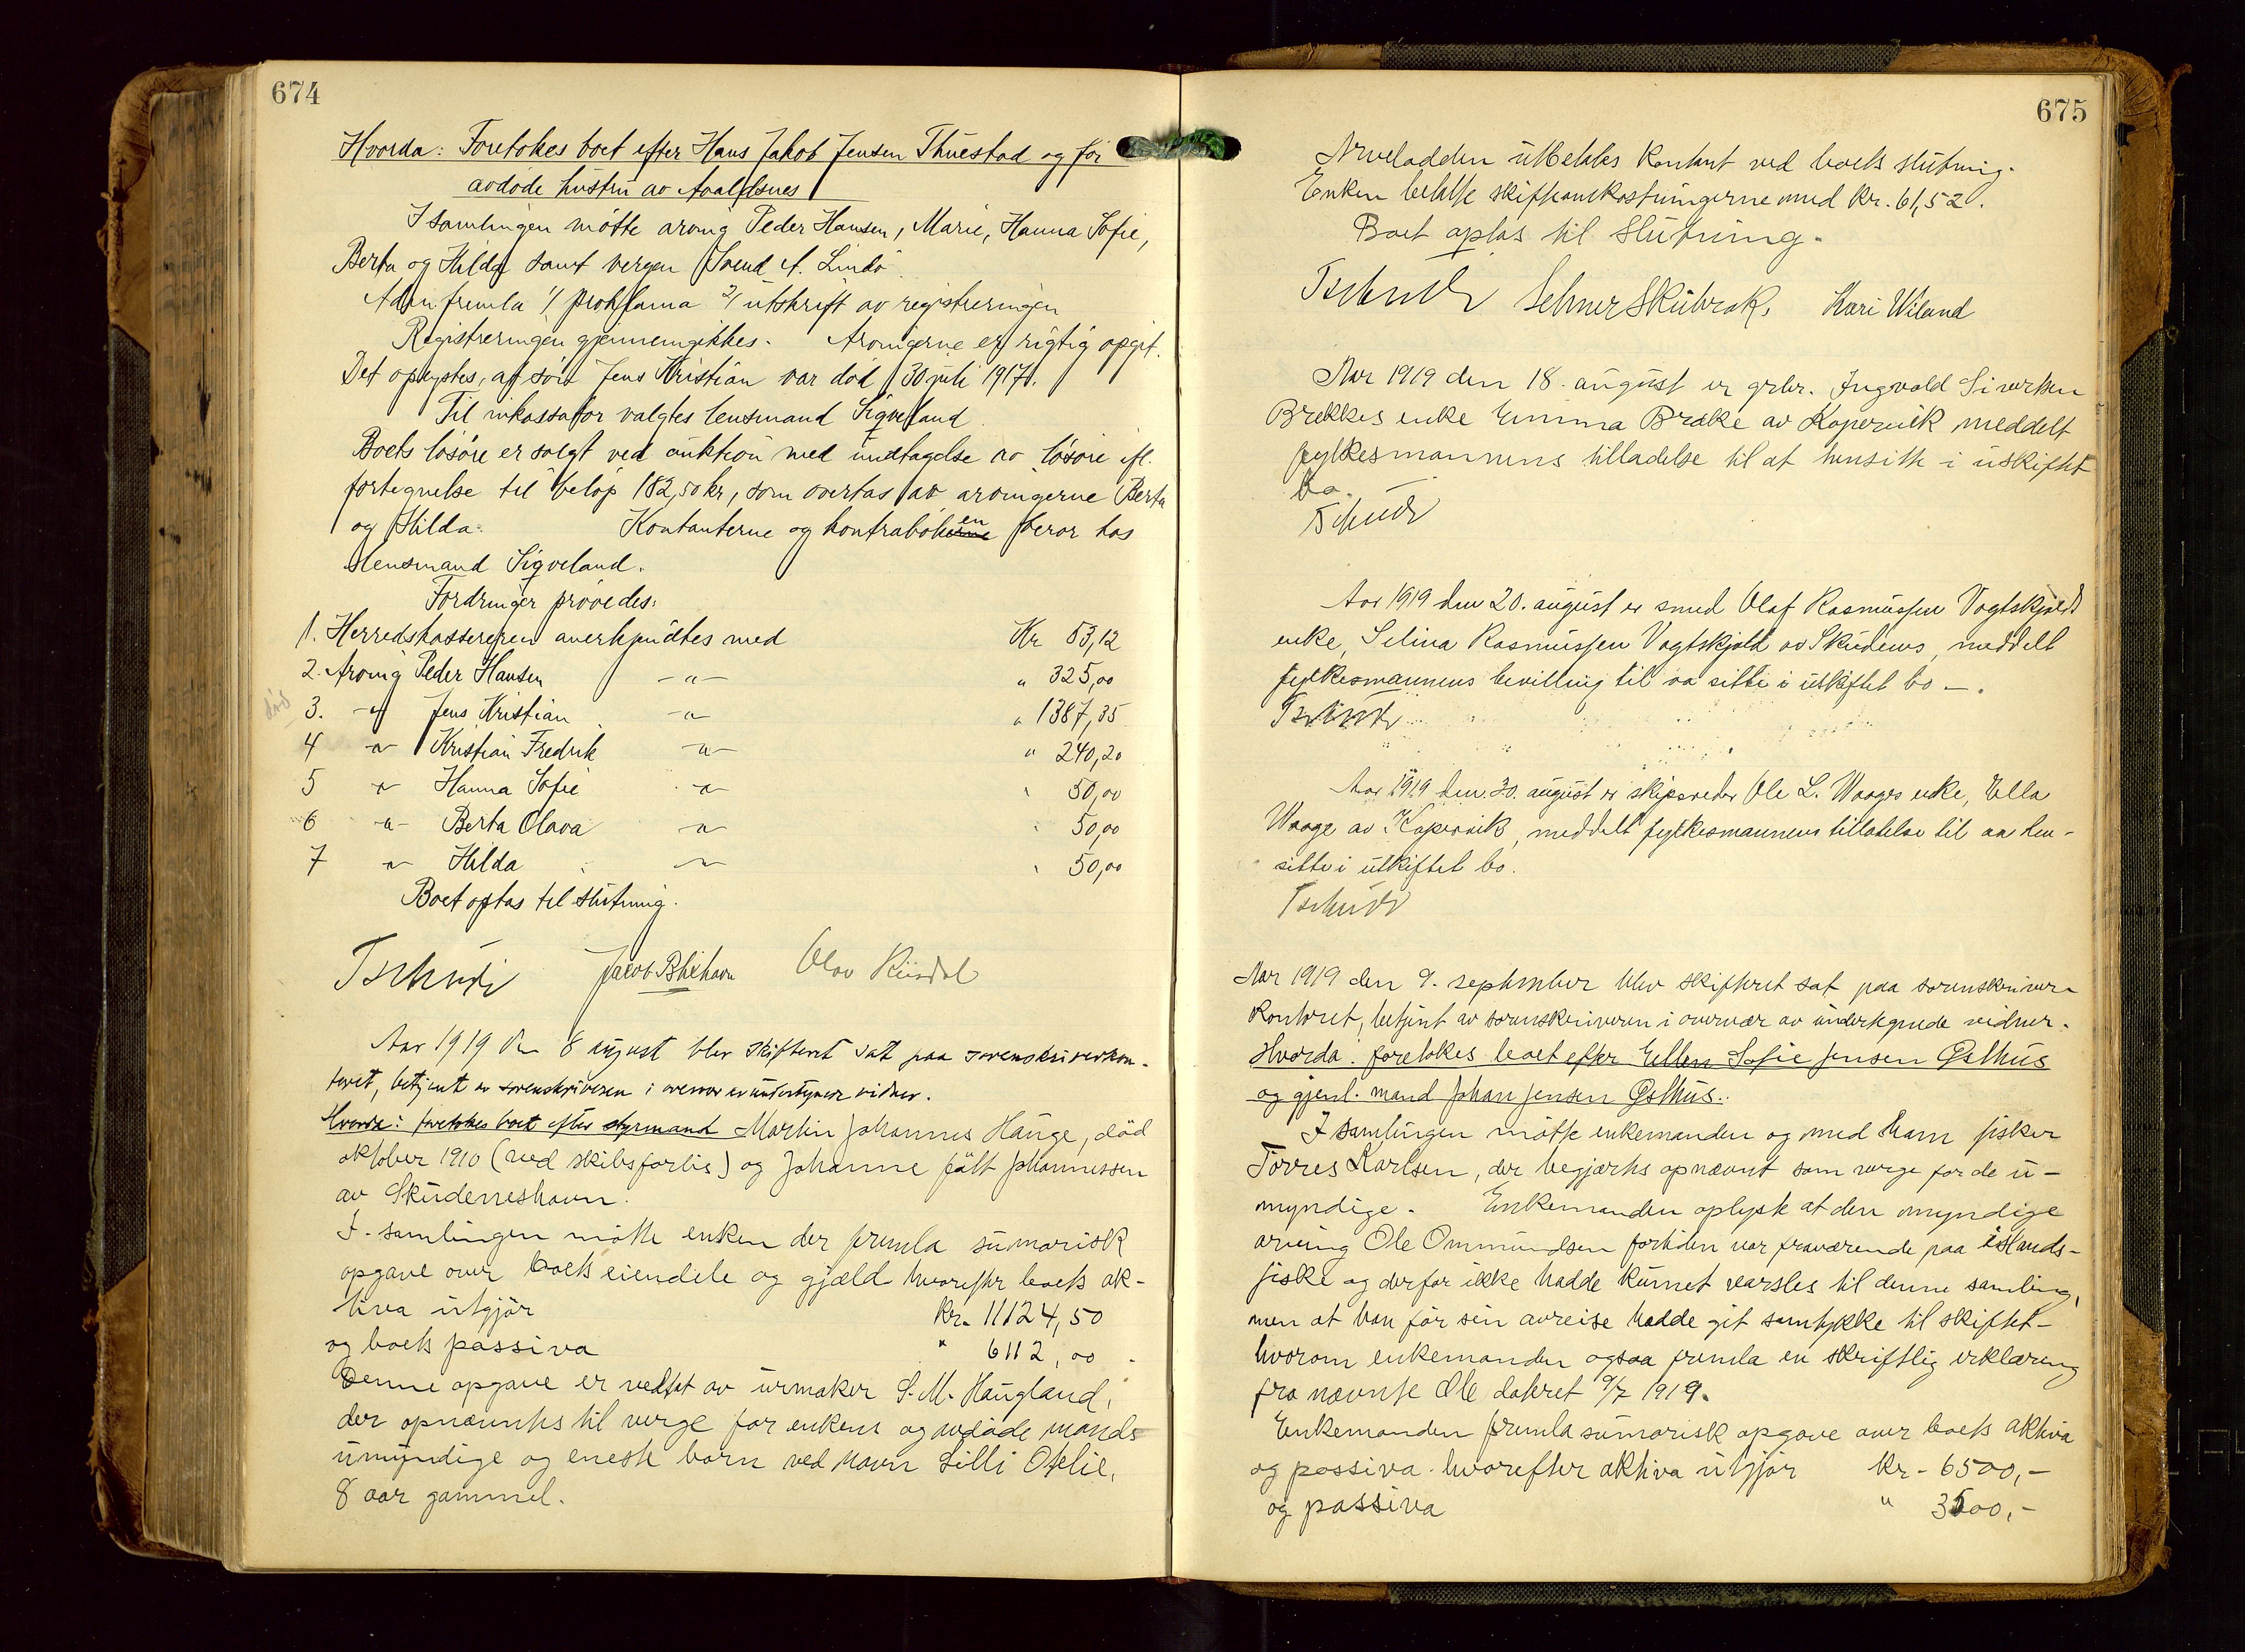 674
Hvorda: Foretokes boet efter Hans Jakob Jensen Thuestad og før
avdøde hustru av Avaldsnes
I samlingen møtte arving Peder Hansen, Marie, Hanna Sofie,
Berta og Hilda samt vergen Svend A. Lindø.
Adm. fremla 1/ proklama 2/ utskrift av registreringen
Registreringen gjennemgikkes. Arvingerne er rigtig opgit.
Det oplystes, at søn Jens Kristian var død 30 juli 1917.
Til inkassator valgtes lensmand Sigveland.
Boets løsøre er solgt ved auktion med undtagelse av løsøre ifl.
fortegnelse til beløp 182,50 kr, som overtas av arvingerne Berta
og Hilda. Kontanterne og kontraboken beror hos
lensmand Sigveland.
Fordringer prøvedes:
1. Herredskassereren anerkjendtes med Kr 53,12
2. Arving Peder Hansen -"- " 325,00
død 3. -"- Jens Kristian -"- " 1387,35
4 -"- Kristian Fredrik -"- " 240,20
5 -"- Hanna Sofie -"- " 50,00
6 -"- Berta Olava -"- " 50,00
7 -"- Hilda -"- " 50,00
Boet optas til slutning.
Tschudi Jacob Blikhavn Olav
Aar 1919 den 8 august blev skifteret sat paa sorenskriverkon-
toret, betjent av sorenskriveren i overvær av undertegnede vidner.
Hvorda: foretokes boet efter styrmand Martin Johannes Hauge, död
oktober 1910 (ved skibsforlis) og Johanne födt Johannessen
av Skudeneshavn.
I samlingen mötte enken der fremla sumarisk
opgave over boets eiendele og gjæld hvorefter boets ak-
tiva utgjör kr. 11124,50
og boets passiva " 6112,00.
Denne opgave er vedtat av urmaker S. M. Haugland,
der opnævntes til verge for enkens og avdøde mands
umyndige og eneste barn ved navn Lilli Otelie,
8 aar gammel.
675
Arvelodden utbetales kontant ved boets slutning.
Enken betalte skifteomkostningerne med kr. 61,52.
Boet optas til slutning.
Tschudi Selmer Skibrak, Kari Wiland
Aar 1919 den 18. august er grbr. Ingvald Sivertsen
Brekkes enke Emma Brække av Kopervik meddelt
fylkesmannens tilladelse til at hensitte i uskiftet
bo.
Tschudi
Aar 1919 den 20. august er smed Olaf Rasmussen Vogtskjolds
enke, Selina Rasmussen Vogtskjold av Skudenes, meddelt
fylkesmannens bevilling til aa sitte i uskiftet bo —.
Tschudi
Aar 1919 den 30. august er skipsreder Ole L. Waages enke, Ella
Waage av Kopervik, meddelt fylkesmannens tillatelse til aa hen-
sitte i uskiftet bo.
Tschudi
Aar 1919 den 9. september blev skifteret sat paa sorenskriver-
kontoret, betjent av sorenskriveren i overvær av undertegnede vidner.
Hvorda: foretokes boet efter Ellen Sofie Jensen Østhus
og gjenl. mand Johan Jensen Østhus.
I samlingen mötte enkemanden og med ham fisker
Torres Karlsen, der begjærtes opnævnt som verge for de u-
myndige. Enkemanden oplyste at den myndige
arving Ole Ommundsen fortiden var fraværende paa islands-
fiske og derfor ikke hadde kunnet varsles til denne samling,
men at han för sin avreise hadde git samtykke til skiftet-
hvorom enkemanden ogsaa fremla en skriftlig erklæring
fra nævnte Ole datert 9/7 1919.
Enkemanden fremla sumarisk opgave over boets aktiva
og passiva hvorefter aktiva utgjör kr. 6500,-
og passiva " 3500,-